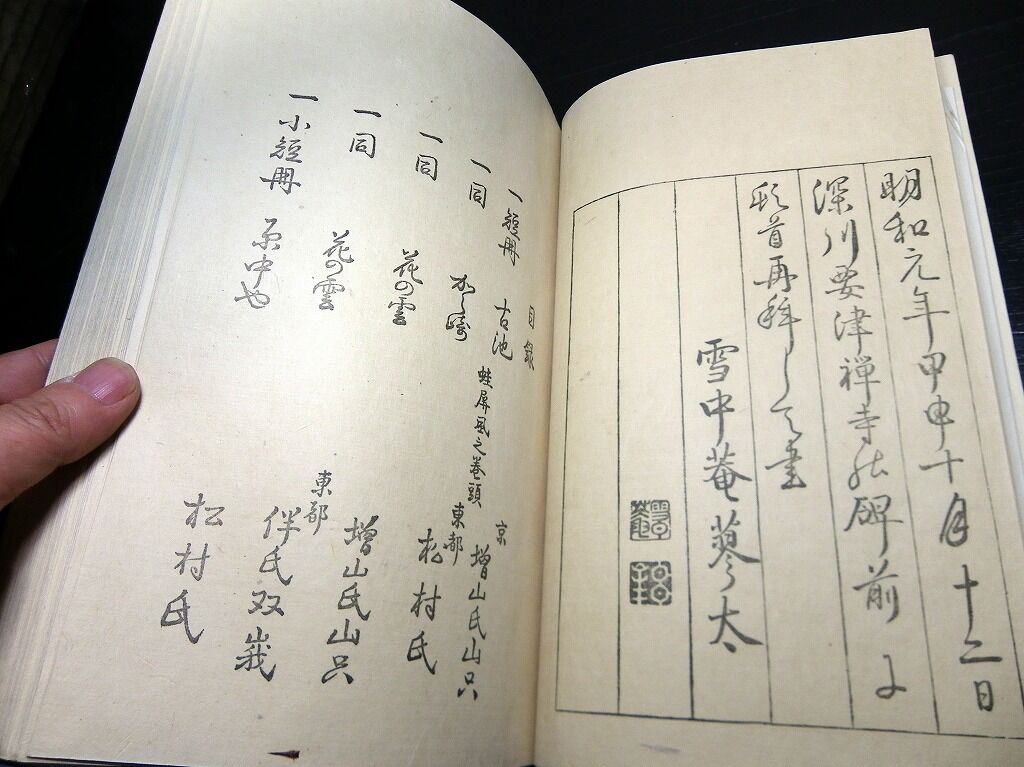 明和元年甲申十月十二日
深川要津禅寺の碑前に
頓首再拝して書
雪中菴蓼太
目録
一短冊 古池 蛙屏風之巻頭 京 増山氏山只
一同 から崎 東都 松村氏
一同 花の雲 増山氏山只
一同 花の雲 東都 伴氏双峩
一小短冊 原中や 松村氏